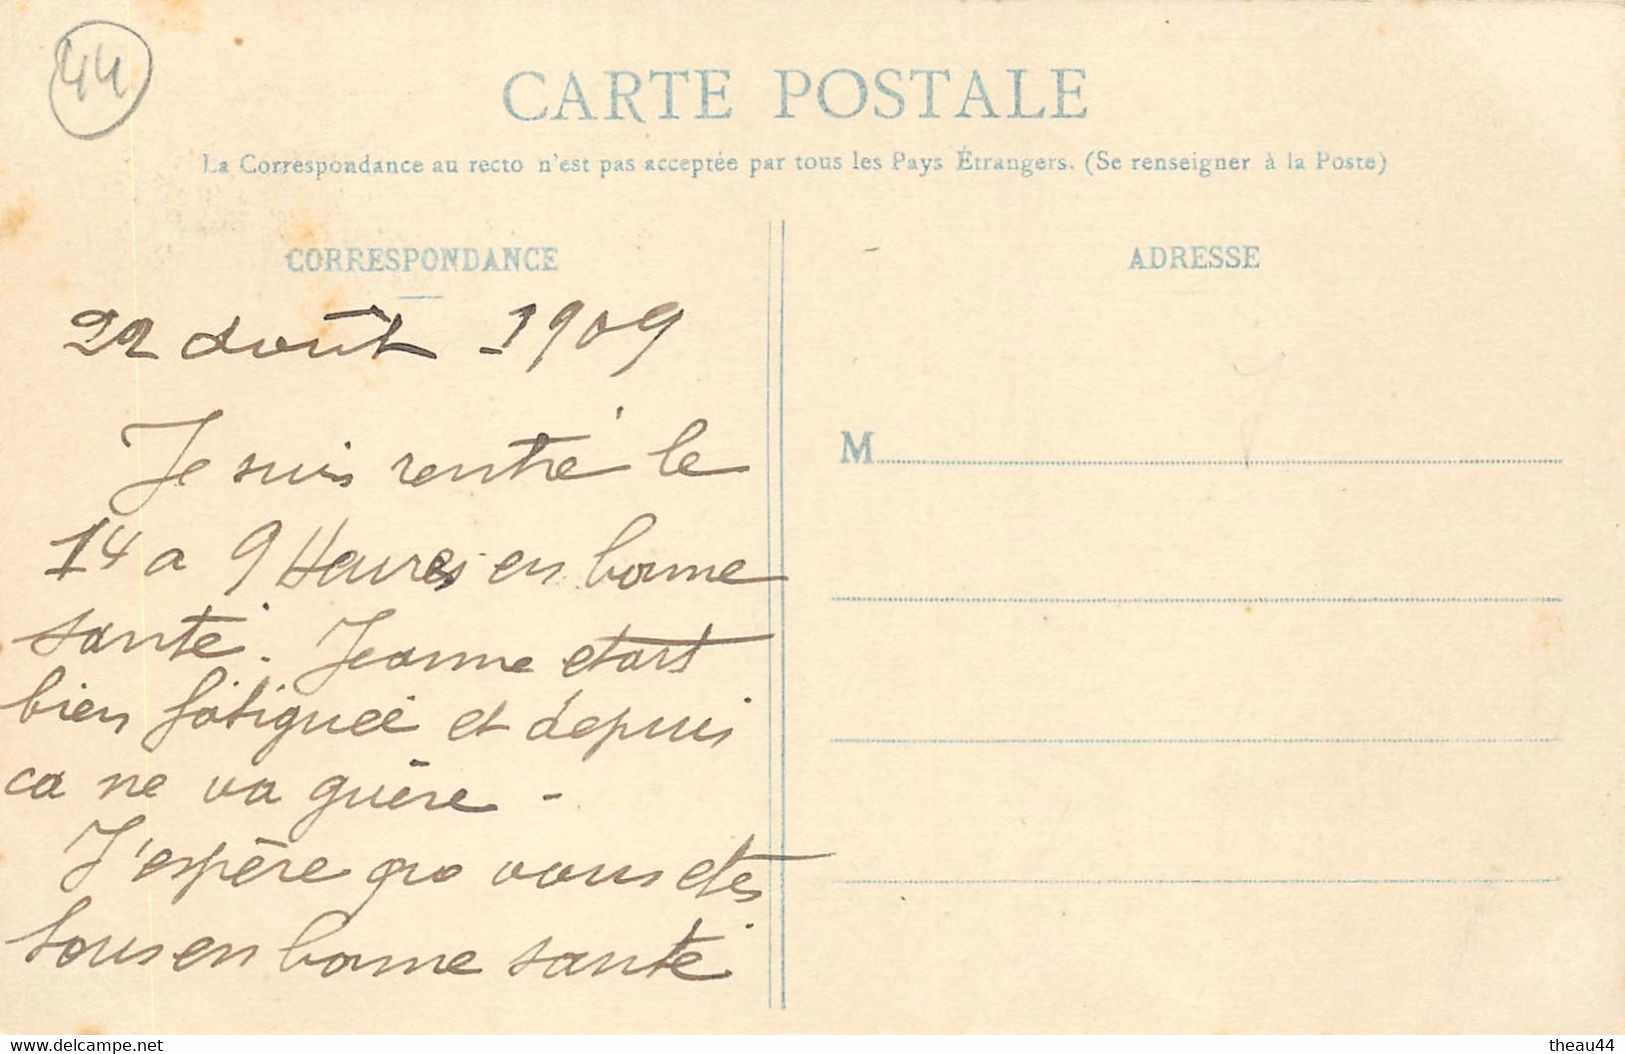 44
CARTE POSTALE
La Correspondance au recto n'est pas acceptée par tous les Pays Étrangers. (Se renseigner à la Poste)
CORRESPONDANCE
ADRESSE
22 août 1909
Je suis rentré le
14 a 9 Heures en bonne
santé. Jeanne etait
bien fatiguée et depuis
ca ne va guère -
J'espère que vous etes
tous en bonne santé
M
www.delcampe.net
theau44